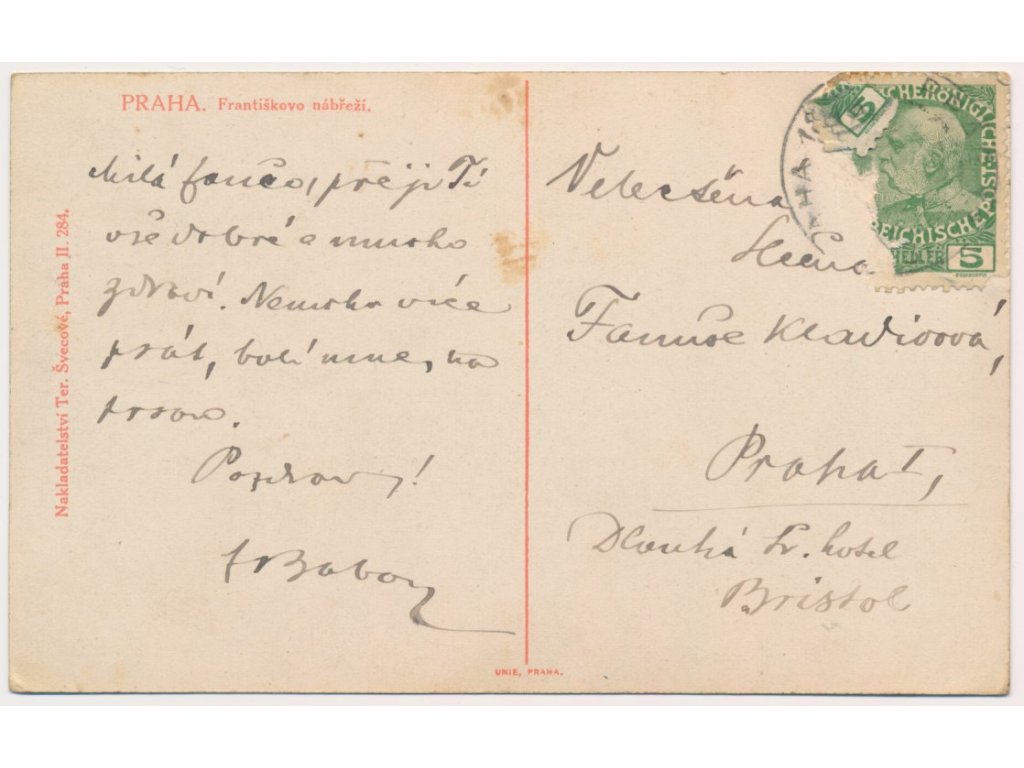 PRAHA. Františkovo nábřeží.
Milá Fančo, přeji Ti
vše dobré a mnoho
zdraví. Nemohu více
psát, bolí mne, na
prsou.
Pozdrav!
Nakladatelství Ter. Švecové, Praha II. 284.
UNIE, PRAHA.
PRAHA 1
5
REICHISCHE POST
HELLER 5
Velectěná
Slečna
Praha I,
Dlouhá tř. hotel
Bristol